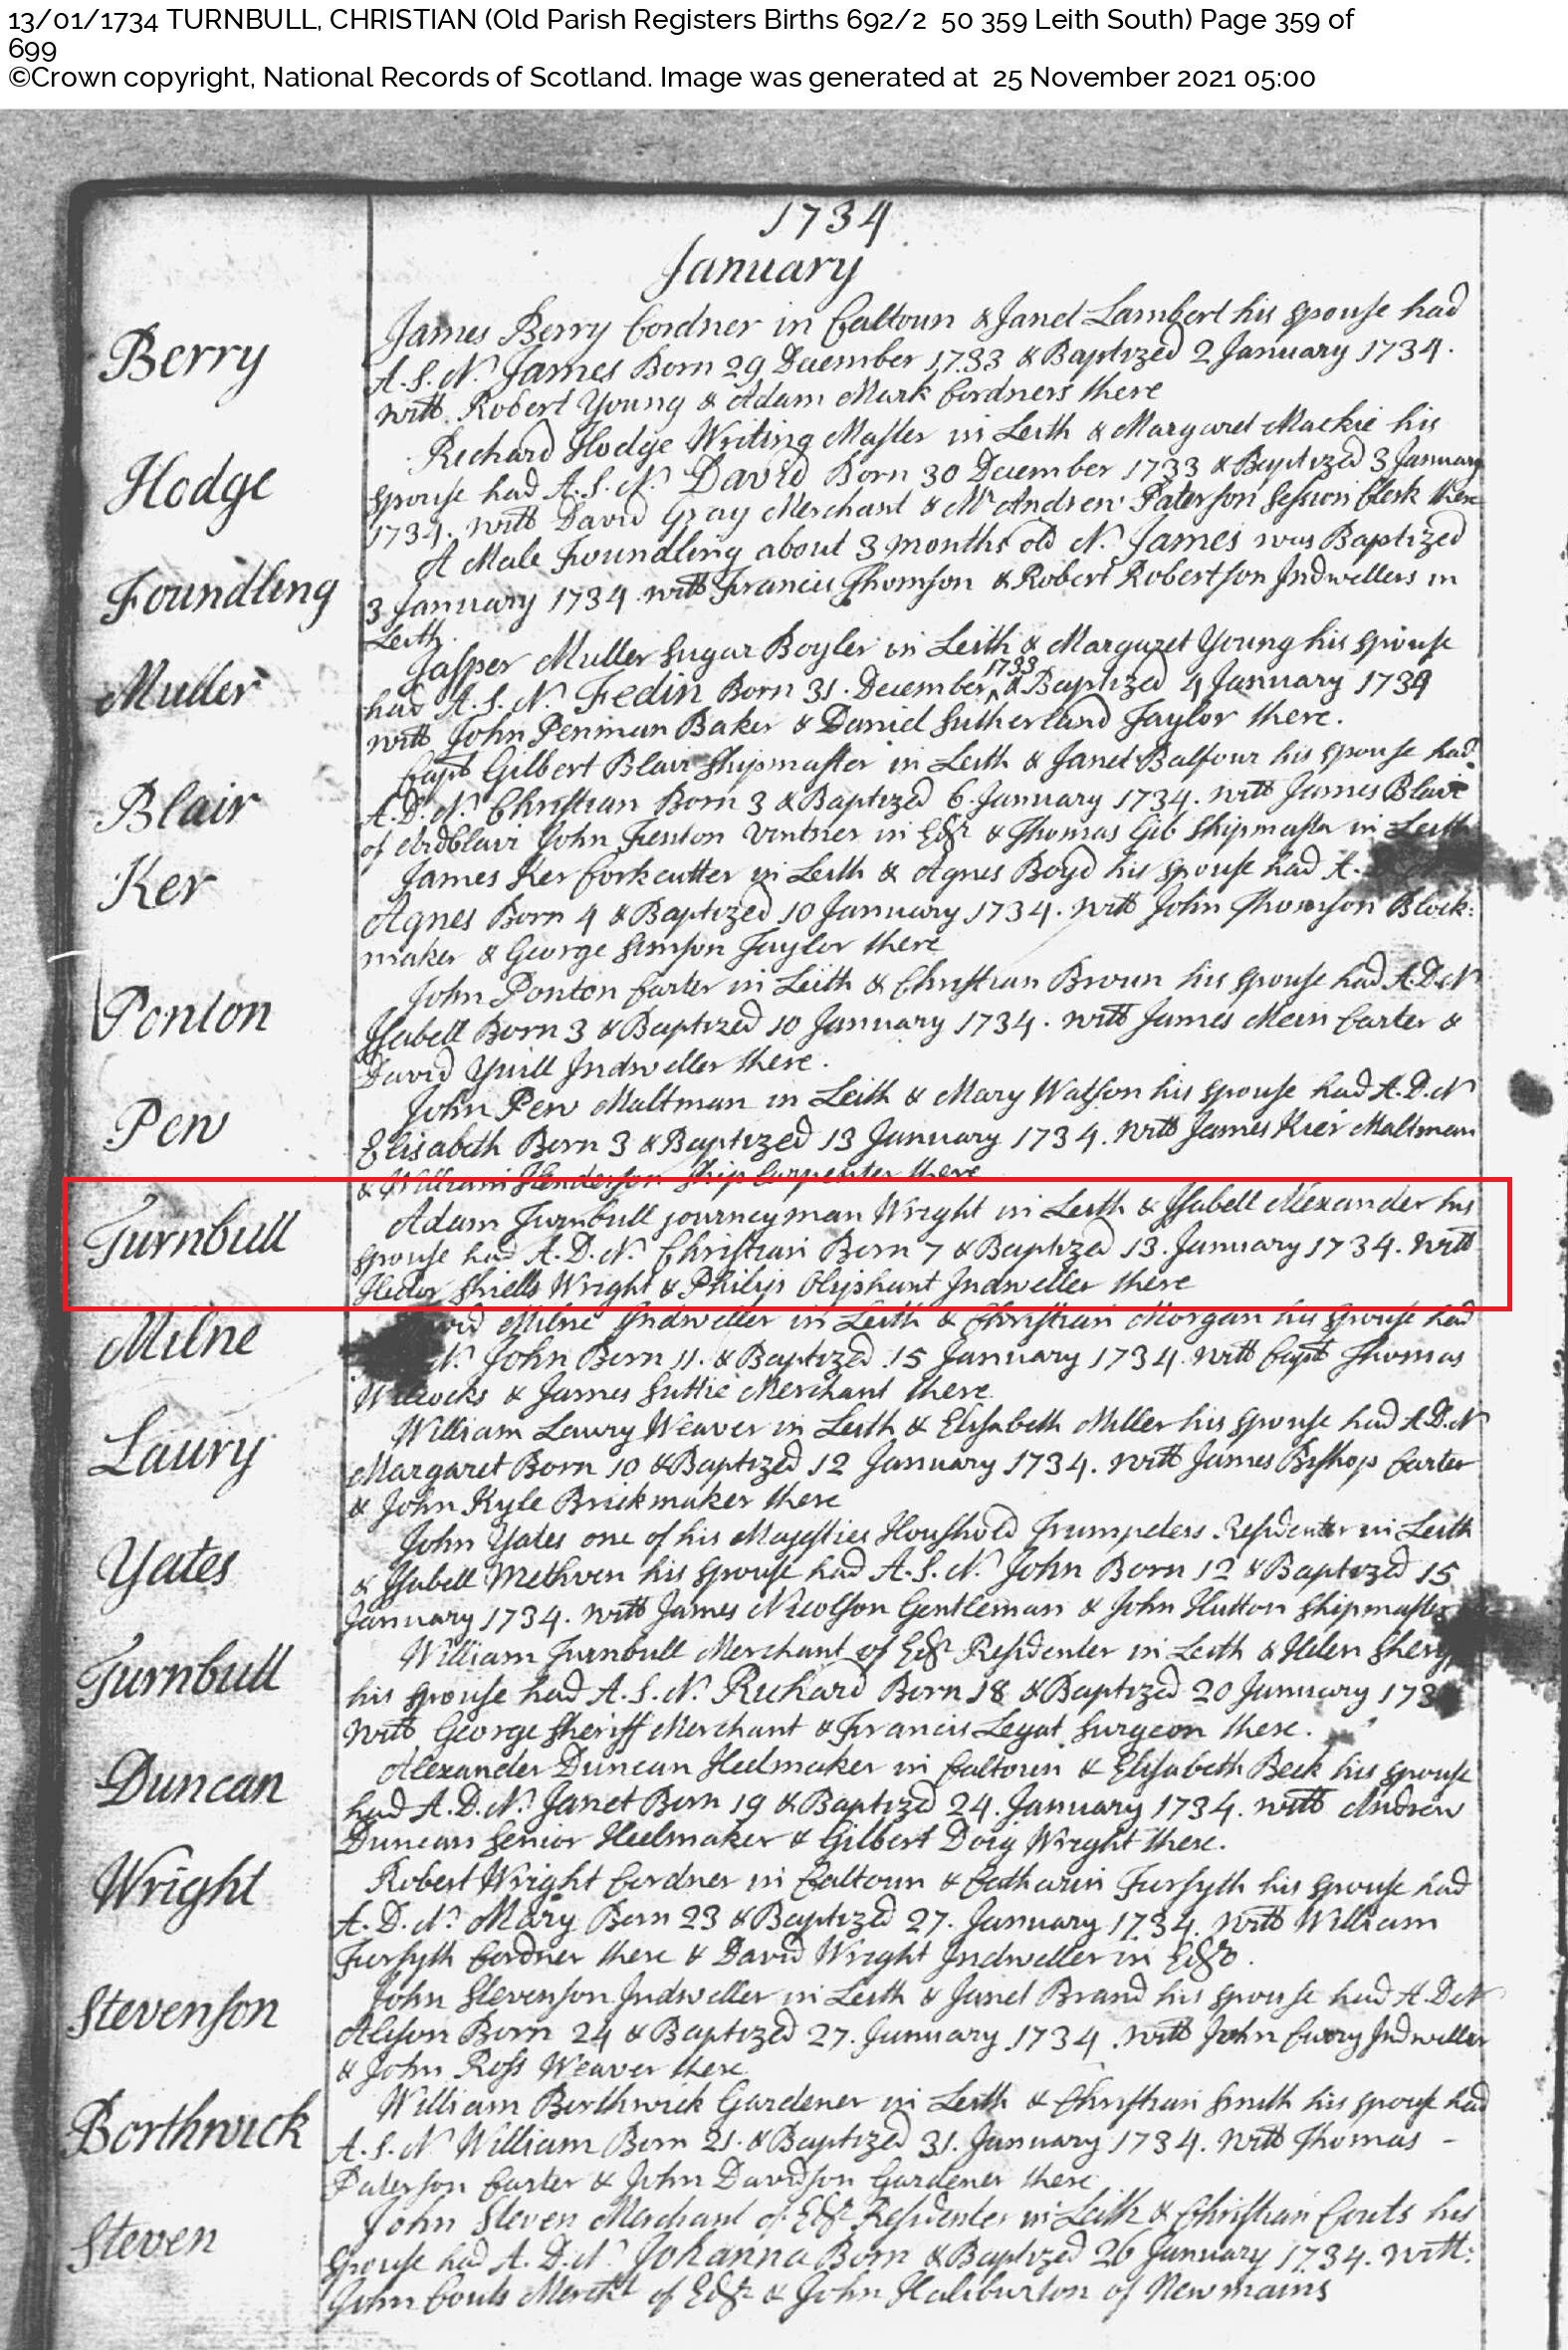 13/01/1734 TURNBULL, CHRISTIAN (Old Parish Registers Births 692/2 50 359 Leith South) Page 359 of
699
©Crown copyright, National Records of Scotland. Image was generated at 25 November 2021 05:00
1734
January
Berry
James Berry Cordner in Caltoun & Janet Lambert his spouse had
A. S. N. James Born 29 December 1733 & Baptized 2 January 1734.
witt. Robert Young & Adam Mark Cordners there
Hodge
Richard Hodge Writing Master in Leith & Margaret Mackie his
spouse had A. S. N. David Born 30 December 1733 & Baptized 3 January
1734. witt David Gray Merchant & Mr Andrew Paterson Session Clerk there
Foundling
A Male Foundling about 3 months old N. James was Baptized
3 January 1734. witt Francis Thomson & Robert Robertson Indwellers in
Leith.
Muller
Jasper Muller Sugar Boyler in Leith & Margaret Young his spouse
had A. S. N. Fedin Born 31. December 1733 & Baptized 4 January 1734
witt John Penman Baker & Daniel Sutherland Taylor there.
Blair
Capt Gilbert Blair Shipmaster in Leith & Janet Balfour his spouse had
A. D. N. Christian Born 3 & Baptized 6. January 1734. witt James Blair
of Ardblair John Fenton Vintner in Edr & Thomas Gib Shipmaster in Leith
Ker
James Ker Corkcutter in Leith & Agnes Boyd his spouse had A.
Agnes Born 4 & Baptized 10 January 1734. witt John Thomson Block:
maker & George Simson Taylor there
Ponton
John Ponton Carter in Leith & Christian Broun his spouse had A. D. N
Isabell Born 3 & Baptized 10 January 1734. witt James Mein Carter &
David Yuill Indweller there.
Pew
John Pew Maltman in Leith & Mary Watson his spouse had A. D. N
Elisabeth Born 3 & Baptized 13 January 1734. witt James Kier Maltman
& William Henderson Ship Carpenter there
Turnbull
Adam Turnbull journeyman Wright in Leith & Isabell Alexander his
spouse had A. D. N. Christian Born 7 & Baptized 13. January 1734. witt
Hector Shiells Wright & Philip Olyphant Indweller there
Milne
Milne Indweller in Leith & Christian Morgan his spouse had
N. John Born 11. & Baptized 15 January 1734. witt Capt Thomas
Willcocks & James Suttie Merchant there
Laury
William Laury Weaver in Leith & Elisabeth Miller his spouse had A. D. N
Margaret Born 10 & Baptized 12 January 1734. witt James Bishop Carter
& John Kyle Brickmaker there
Yates
John Yates one of his Majesties Houshold Trumpeters Residenter in Leith
& Isabell Methven his spouse had A. S. N. John Born 12 & Baptized 15
January 1734. witt James Nicolson Gentleman & John Hutton Shipmaster
Turnbull
William Turnbull Merchant of Edr Residenter in Leith & Helen
his spouse had A. S. N. Richard Born 18 & Baptized 20 January 173
witt George Sheriff Merchant & Francis Legat Surgeon there.
Duncan
Alexander Duncan Heelmaker in Caltoun & Elisabeth Beck his spouse
had A. D. N. Janet Born 19 & Baptized 24. January 1734. witt Andrew
Duncan Senior Heelmaker & Gilbert Doig Wright there.
Wright
Robert Wright Cordner in Caltoun & Catharin Forsyth his spouse had
A. D. N. Mary Born 23 & Baptized 27. January 1734. witt William
Forsyth Cordner there & David Wright Indweller in Edr.
Stevenson
John Stevenson Indweller in Leith & Janet Brand his spouse had A. D. N
Alison Born 24 & Baptized 27. January 1734. witt John Indweller
& John Ross Weaver there
Borthwick
William Borthwick Gardener in Leith & Christian Smith his spouse had
A. S. N. William Born 21. & Baptized 31. January 1734. witt Thomas -
Paterson Carter & John Davidson Gardener there
Steven
John Steven Merchant of Edr Residenter in Leith & Christian Couts his
spouse had A. D. N. Johanna Born & Baptized 26 January 1734. witt:
John Couts Mercht of Edr & John Haliburton of Newmains